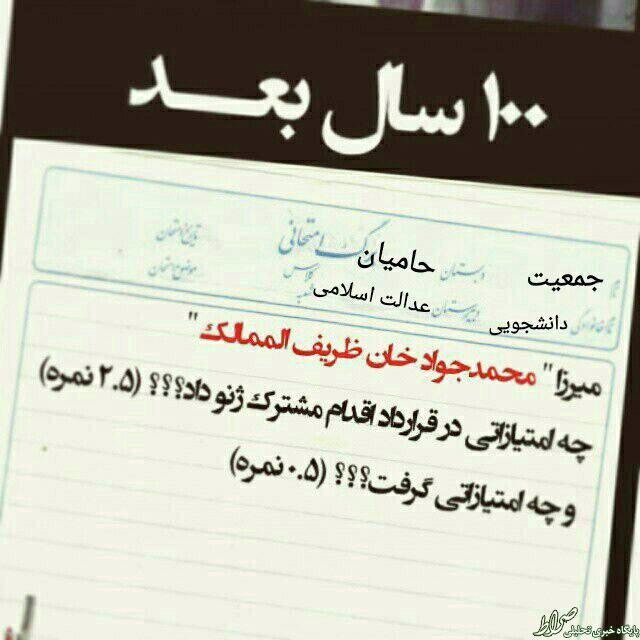 ۱۰۰ سال بعد
برگ امتحانی
تاریخ امتحان
نام جمعیت دبستان حامیان کلاس موضوع امتحان
نام خانوادگی دانشجویی دبیرستان عدالت اسلامی شعبه
میرزا " محمدجواد خان ظریف الممالک "
چه امتیازاتی در قرارداد اقدام مشترک ژنو داد؟؟؟ (۲.۵ نمره)
و چه امتیازاتی گرفت؟؟؟ (۰.۵ نمره)
پایگاه خبری تحلیلی صراط